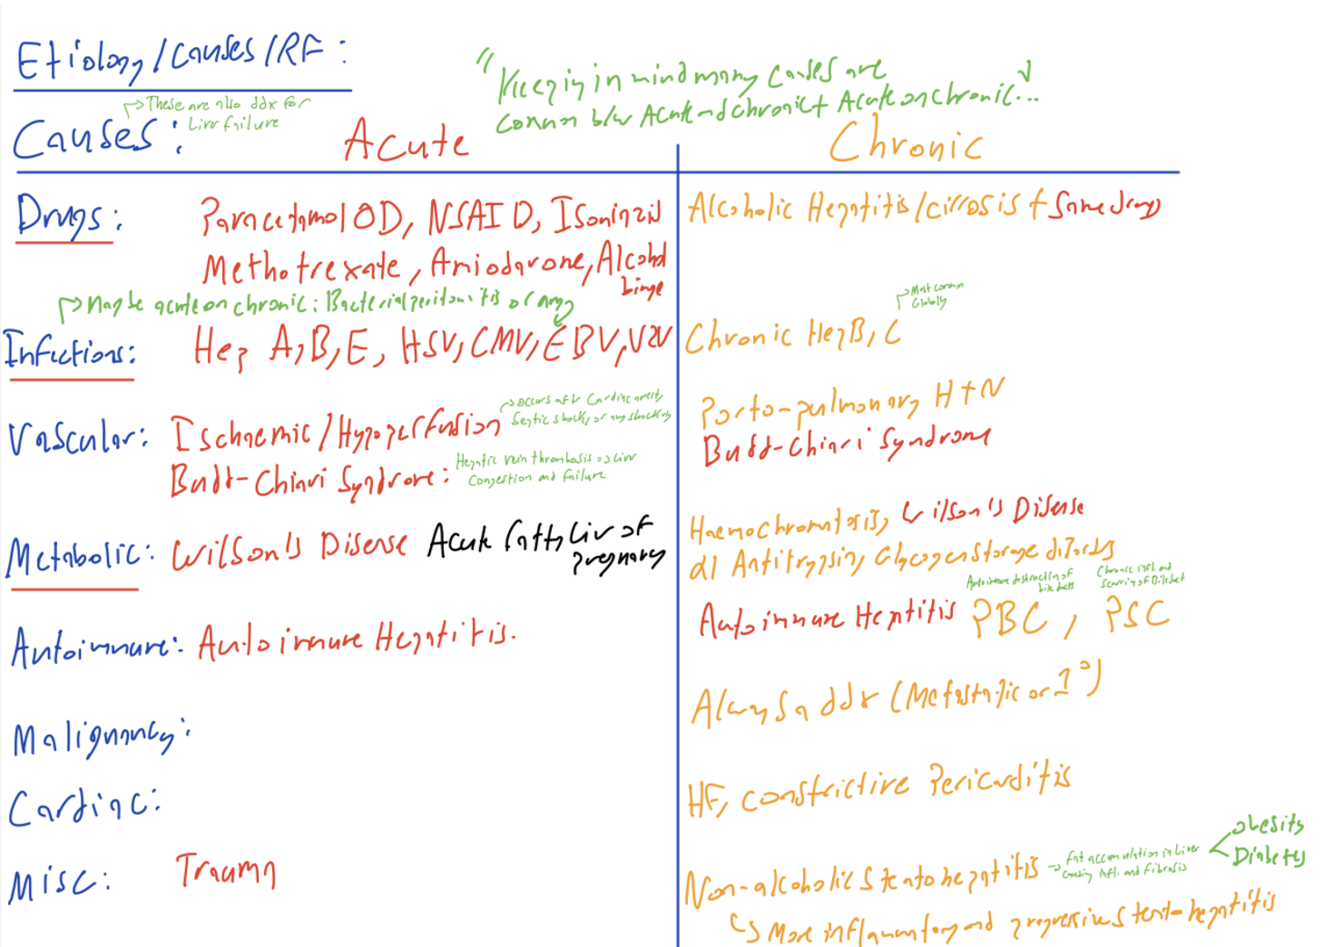 Etiology/Causes/RF:
"Keeping in mind many causes are
common b/w Acute and chronic + Acute on chronic..."
→ These are also ddx for
Liver failure
Causes: Acute Chronic
Drugs: Paracetamol OD, NSAID, Isoniazid
Methotrexate, Amiodarone, Alcohol
binge
Alcoholic Hepatitis/cirrosis + Same drugs
→ Maybe acute on chronic: Bacterial peritonitis or any
Infections: Hep A, B, E, HSV, CMV, EBV, VZV
→ Most common
Globally
Chronic Hep B, C
Vascular: Ischaemic/Hypoperfusion
→ Occurs after Cardiac arrest,
Septic shock, or any shock
Budd-Chiari Syndrome:
Hepatic vein thrombosis => Liver
Congestion and Failure
Porto-pulmonary HTN
Budd-Chiari Syndrome
Metabolic: Wilson's Disease Acute fatty liv of
pregnancy
Haemochromatosis, Wilson's Disease
α1 Antitrypsin, Glycogen storage disords
Autoimmune: Autoimmune Hepatitis.
Autoimmune destruction of
bile ducts
Chronic infl and
Scarring of Bile duct
Autoimmune Hepatitis PBC, PSC
Malignancy:
Always a ddx (Metastatic or 1°)
Cardiac:
HF, constrictive Pericarditis
Misc: Trauma
Non-alcoholic Steatohepatitis → Fat accumulation in Liver
causing infl. and Fibrosis
obesity
Diabetes
↳ More inflammatory and progressive steatohepatitis